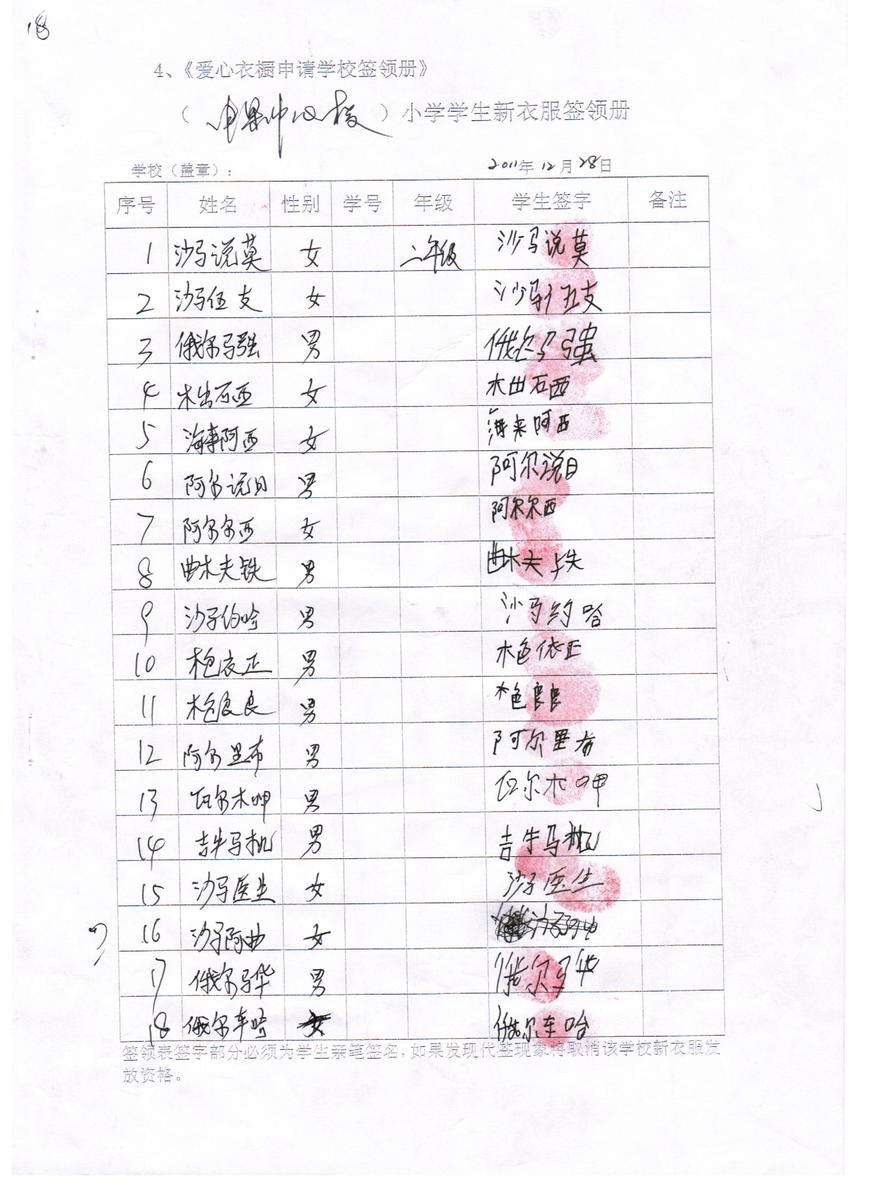 18
4、《爱心衣橱申请学校签领册》
（ 中心校 ）小学学生新衣服签领册
学校（盖章）： 2011年 12 月 28 日
序号 姓名 性别 学号 年级 学生签字 备注
1 沙马说莫 女 二年级 沙马说莫
2 沙马伍支 女 沙马伍支
3 俄尔马强 男 俄尔马强
4 木出石西 女 木出石西
5 海来阿西 女 海来阿西
6 阿尔说日 男 阿尔说日
7 阿尔尔西 女 阿尔尔西
8 曲木夫铁 男 曲木夫铁
9 沙马约哈 男 沙马约哈
10 木色依正 男 木色依正
11 木色良良 男 木色良良
12 阿尔里布 男 阿尔里布
13 瓦尔木呷 男 瓦尔木呷
14 吉牛马机 男 吉牛马机
15 沙马医生 女 沙马医生
16 沙马阿曲 女
17 俄尔马华 男 俄尔马华
18 俄尔车哈 女 俄尔车哈
签领表签字部分必须为学生亲笔签名，如果发现代签现象将取消该学校新衣服发
放资格。